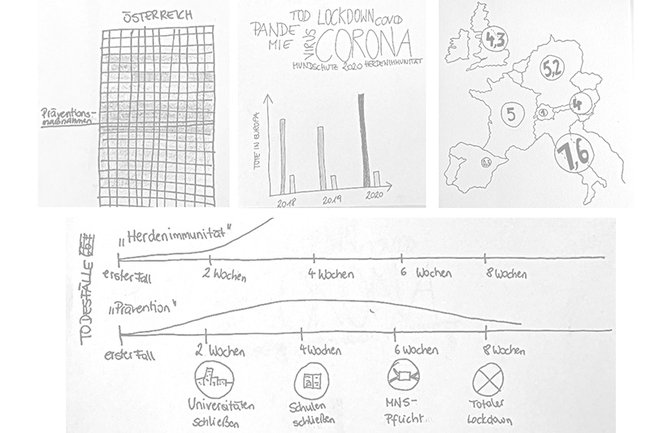 ÖSTERREICH
Präventions-
maßnahmen
TOD LOCKDOWN COVID
PANDE
MIE
VIRUS
CORONA
MUNDSCHUTZ 2020 HERDENIMMUNITÄT
TOTE IN EUROPA
2018
2019
2020
4,3
5,2
5
4
7,6
TODESFÄLLE
„Herdenimmunität"
erster Fall
2 Wochen
4 Wochen
6 Wochen
8 Wochen
„Prävention"
erster Fall
2 Wochen
4 Wochen
6 Wochen
8 Wochen
Universitäten
schließen
Schulen
schließen
MNS-
Pflicht
Totaler
Lockdown